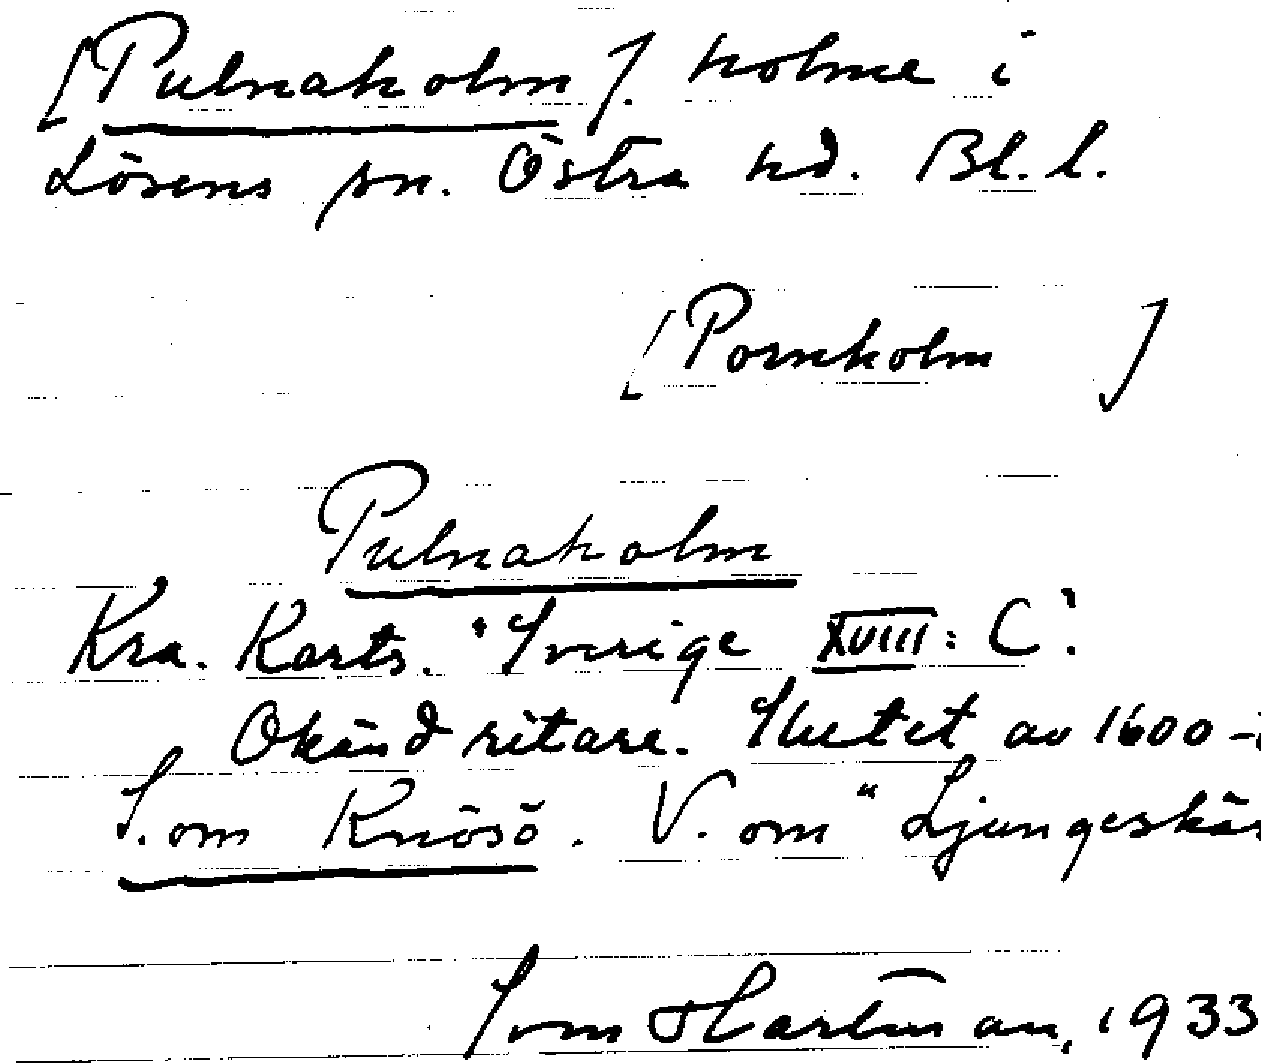 [Pulnaholm]. holme i
Lösens sn. Östra hd. Bl. l.
[Pornholm ]
Pulnaholm
Kra. Karts. "Sverige XVIII: C".
Okänd ritare. Slutet av 1600-
S. om Knösö. V. om "Ljungeskär
Sven Hartman, 1933